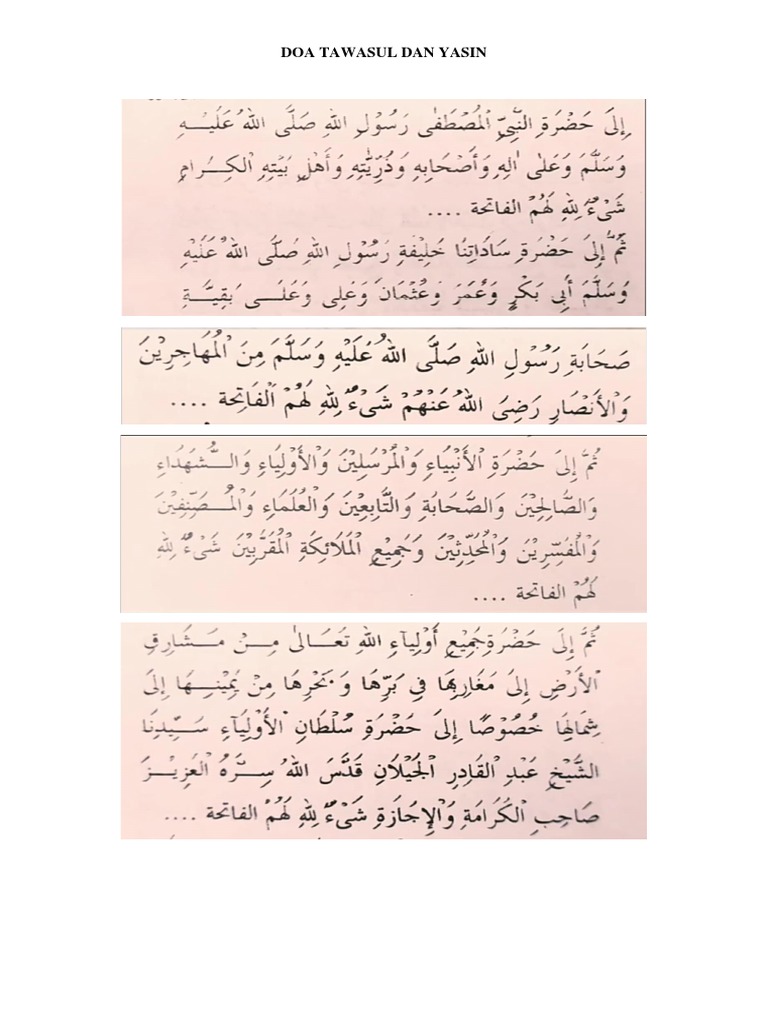 DOA TAWASUL DAN YASIN
إِلَى حَضْرَةِ النَّبِيِّ الْمُصْطَفٰى رَسُوْلِ اللهِ صَلَّى اللهُ عَلَيْـــهِ
وَسَلَّمَ وَعَلٰى اٰلِهِ وَأَصْحَابِهِ وَذُرِّيّٰتِهِ وَأَهْلِ بَيْتِهِ الْكِـــرَامِ
شَيْءٌ لِلّٰهِ لَهُمُ الفاتحة ....
ثُمَّ إِلَى حَضْرَةِ سَادَاتِنَا خَلِيْفَةِ رَسُوْلِ اللهِ صَلَّى اللهُ عَلَيْهِ
وَسَلَّمَ أَبِي بَكْرٍ وَعُمَرَ وَعُثْمَانَ وَعَلِى وَعَلَـــى بَقِيَّـــةِ
صَحَابَةِ رَسُوْلِ اللهِ صَلَّى اللهُ عَلَيْهِ وَسَلَّمَ مِنَ الْمُهَاجِرِيْنَ
وَالْأَنْصَارِ رَضِيَ اللهُ عَنْهُمْ شَيْءٌ لِلّٰهِ لَهُمُ الْفَاتِحة ....
ثُمَّ إِلَى حَضْرَةِ الْأَنْبِيَاءِ وَالْمُرْسَلِيْنَ وَالْأَوْلِيَاءِ وَالـــشُّهَدَاءِ
وَالصَّالِحِيْنَ وَالصَّحَابَةِ وَالتَّابِعِيْنَ وَالْعُلَمَاءِ وَالْمُـــصَنِّفِيْنَ
وَالْمُفَسِّرِيْنَ وَالْمُحَدِّثِيْنَ وَجَمِيْعِ الْمَلَائِكَةِ الْمُقَرَّبِيْنَ شَيْءٌ لِلّٰهِ
لَهُمُ الفاتحة ....
ثُمَّ إِلَى حَضْرَةِ جَمِيْعِ أَوْلِيَآءِ اللهِ تَعَـــالٰى مِـــنْ مَـــشَارِقِ
الْأَرْضِ إِلَى مَغَارِبِهَا فِي بَرِّهَا وَبَحْرِهَا مِنْ يَمِيْنِـــهَا إِلَى
شِمَالِهَا خُصُوْصًا إِلَى حَضْرَةِ سُلْطَانِ الْأَوْلِيَآءِ سَـــيِّدِنَا
الشَّيْخِ عَبْدِ الْقَادِرِ الْجَيْلَانِ قَدَّسَ اللهُ سِـــرَّهُ الْعَزِيْـــزَ
صَاحِبِ الْكَرَامَةِ وَالْإِجَازَةِ شَيْءٌ لِلّٰهِ لَهُمُ الفاتحة ....